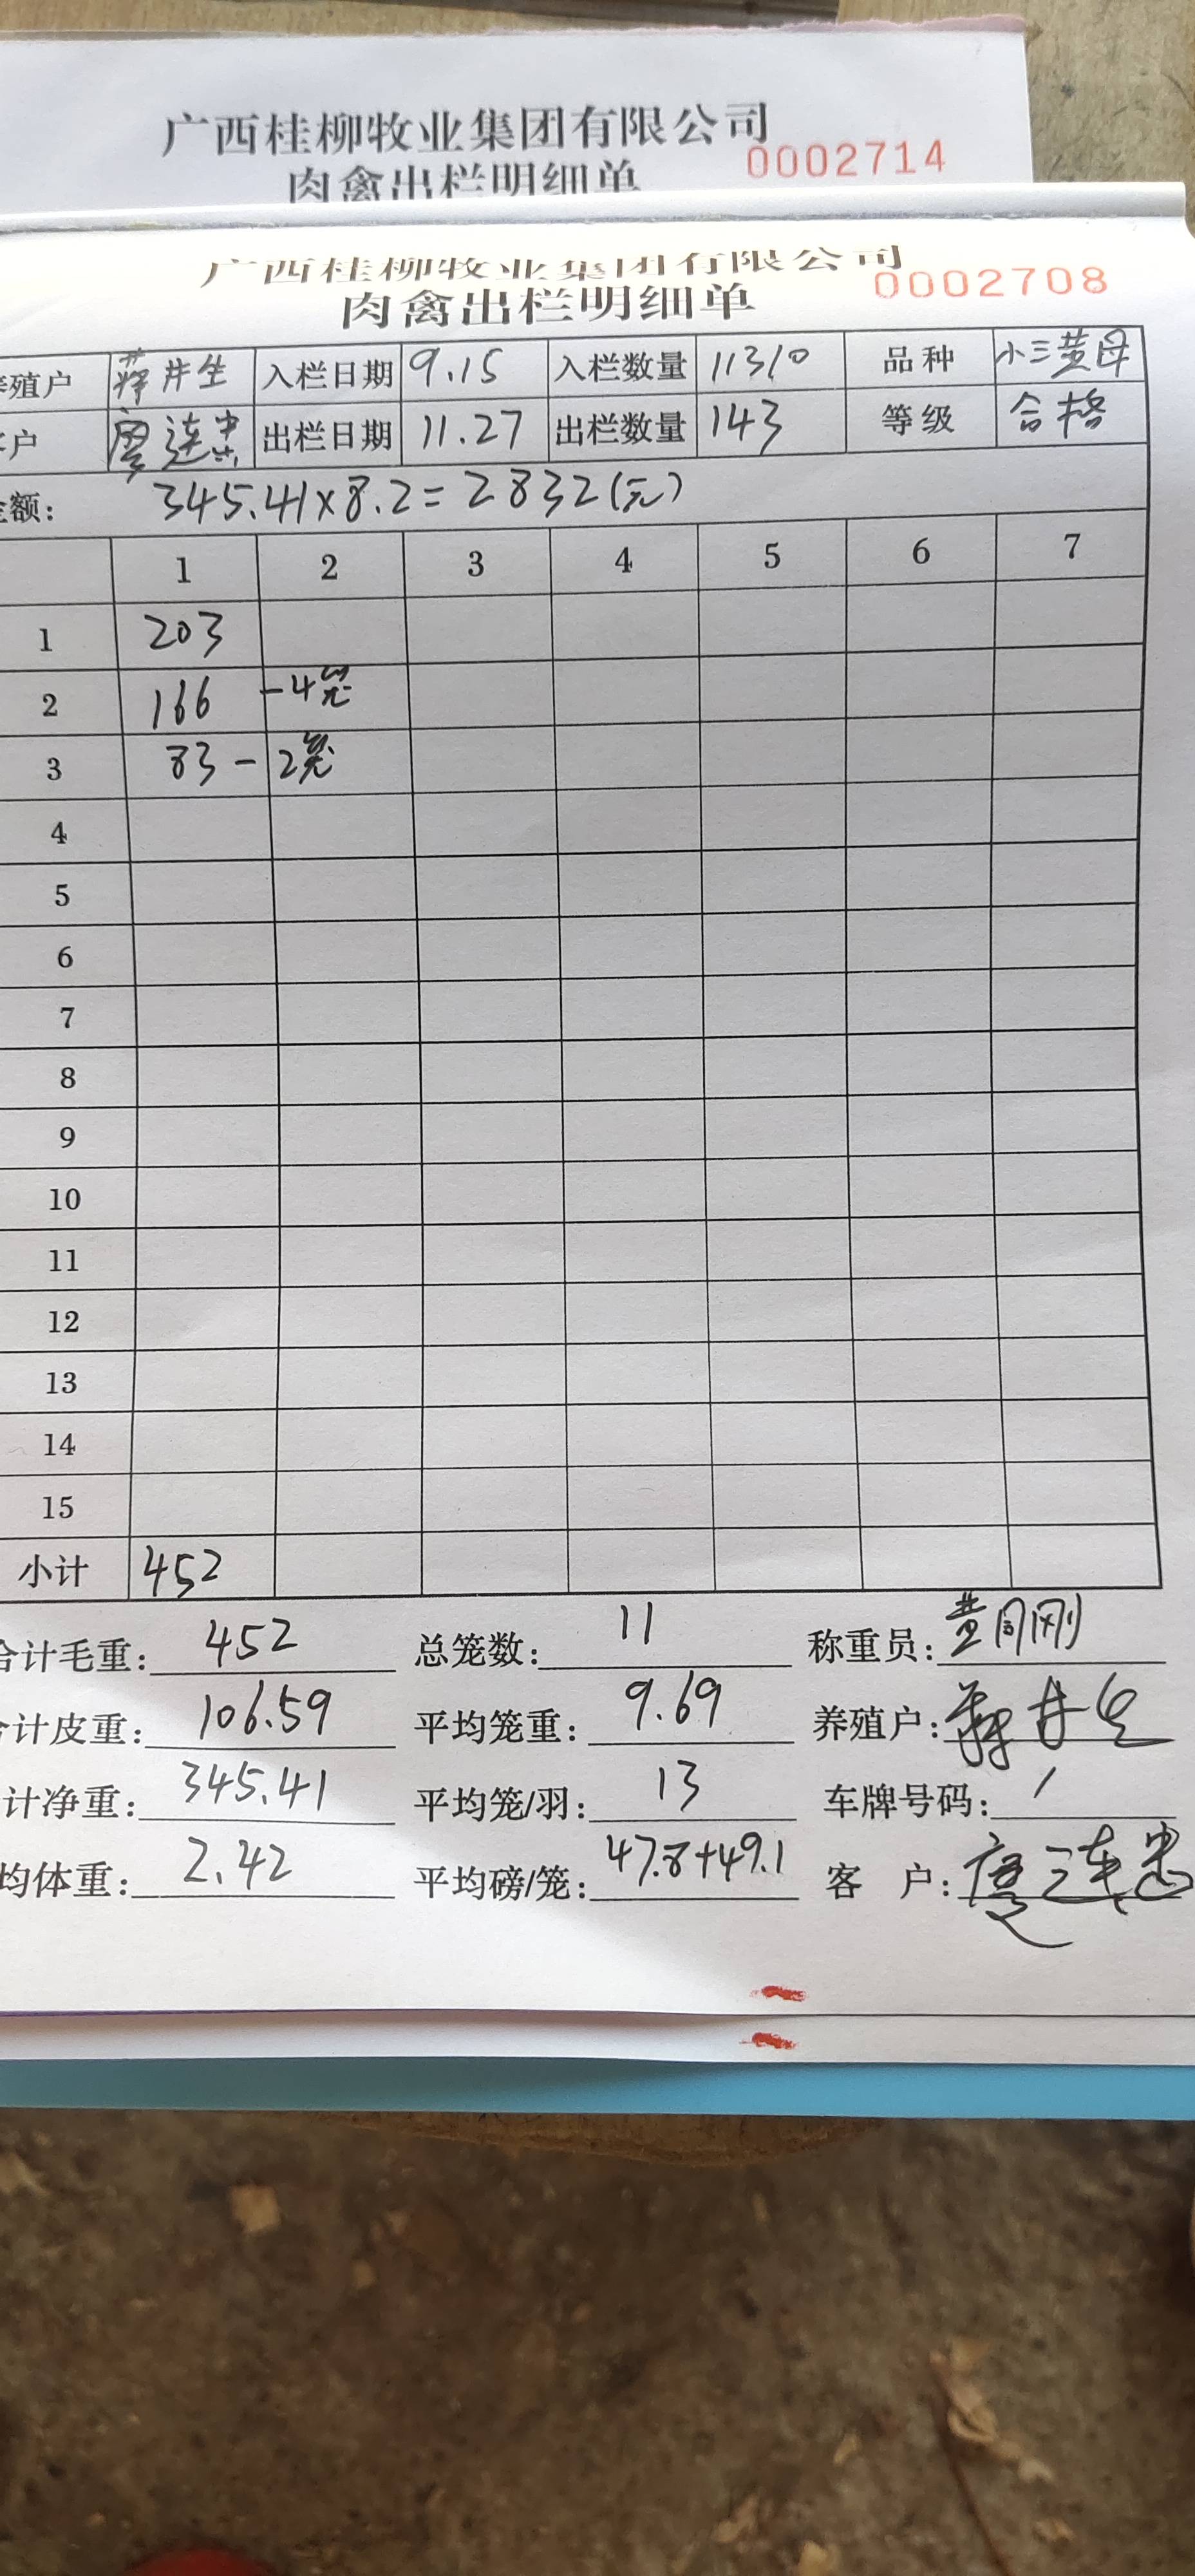 广西桂柳牧业集团有限公司
肉禽出栏明细单 0002714
广西桂柳牧业集团有限公司
肉禽出栏明细单 0002708
养殖户 蒋井生 入栏日期 9.15 入栏数量 11310 品种 小三黄母
客户 廖连忠 出栏日期 11.27 出栏数量 143 等级 合格
金额: 345.41×8.2=2832(元)
1 2 3 4 5 6 7
1 203
2 166 -4笼
3 83 - 2笼
4
5
6
7
8
9
10
11
12
13
14
15
小计 452
合计毛重: 452 总笼数: 11 称重员: 黄刚
合计皮重: 106.59 平均笼重: 9.69 养殖户: 蒋井生
计净重: 345.41 平均笼/羽: 13 车牌号码: /
均体重: 2.42 平均磅/笼: 47.8+49.1 客户: 廖连忠